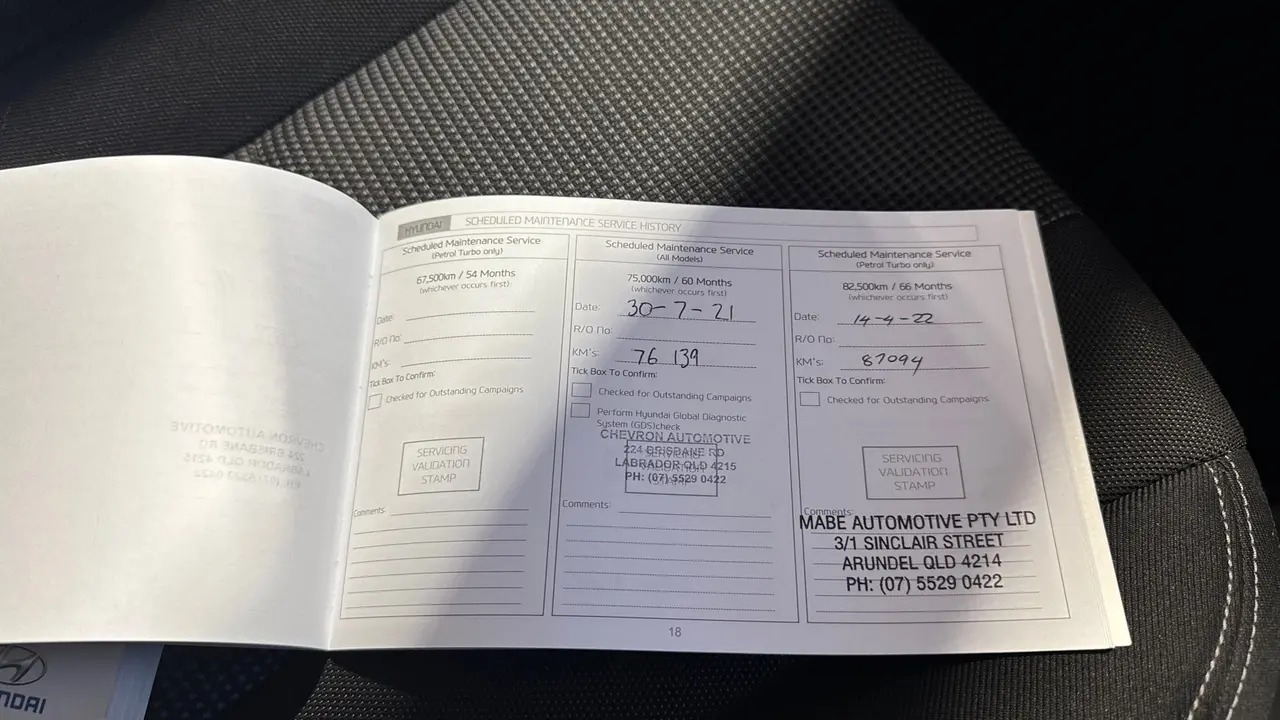 HYUNDAI SCHEDULED MAINTENANCE SERVICE HISTORY
Scheduled Maintenance Service
(Petrol Turbo only)
67,500km / 54 Months
(whichever occurs first)
Date:
R/O No:
KM's:
Tick Box To Confirm:
Checked for Outstanding Campaigns
SERVICING
VALIDATION
STAMP
Comments:
Scheduled Maintenance Service
(All Models)
75,000km / 60 Months
(whichever occurs first)
Date: 30-7-21
R/O No:
KM's: 76 139
Tick Box To Confirm:
Checked for Outstanding Campaigns
Perform Hyundai Global Diagnostic
System (GDS)check
CHEVRON AUTOMOTIVE
224 BRISBANE RD
LABRADOR QLD 4215
PH: (07) 5529 0422
SERVICING
VALIDATION
STAMP
Comments:
Scheduled Maintenance Service
(Petrol Turbo only)
82,500km / 66 Months
(whichever occurs first)
Date: 14-4-22
R/O No:
KM's: 87094
Tick Box To Confirm:
Checked for Outstanding Campaigns
SERVICING
VALIDATION
STAMP
Comments:
MABE AUTOMOTIVE PTY LTD
3/1 SINCLAIR STREET
ARUNDEL QLD 4214
PH: (07) 5529 0422
18
CHEVRON AUTOMOTIVE
224 BRISBANE RD
LABRADOR QLD 4215
PH: (07) 5529 0422